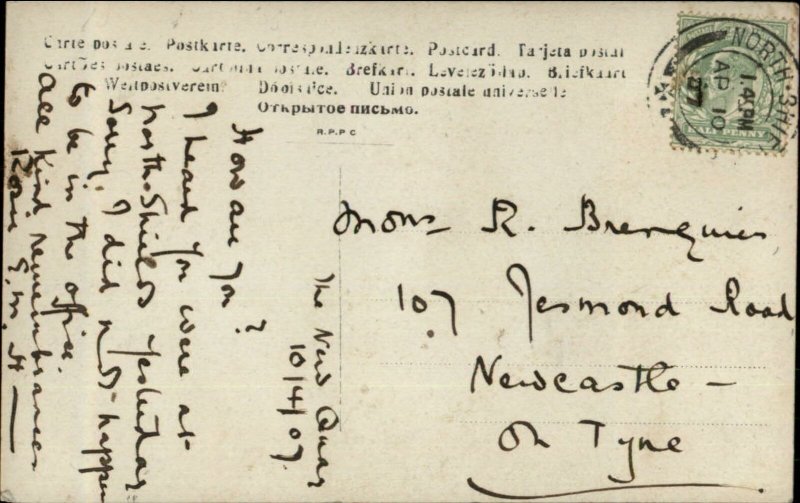 Carte postale. Postkarte. Correspondenzkarte. Postcard. Tarjeta postal
Cartões postaes. Cartolina postale. Brefkort. Levelezőlap. Briefkaart
Weltpostverein. Dopisnice. Union postale universelle
Открытое письмо.
R.P.P.C
NORTH SHIE
1.45PM
AP 10
07
HALFPENNY
Mons R. Brenquier
107 Jesmond Road
Newcastle -
On Tyne
The New Quay
10/4/07.
How are you?
I heard you were at
North-Shields yesterday
Sorry I did not happen
to be in the office.
All kind remembrances
E. M. H